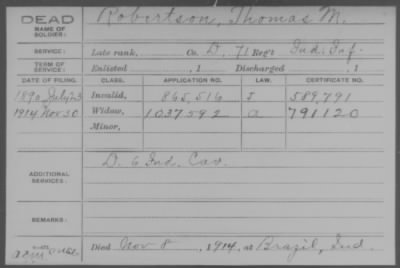 DEAD Robertson, Thomas M.
NAME OF SOLDIER:
SERVICE: Late rank, Co. D, 71 Reg't Ind. Inf.
TERM OF SERVICE: Enlisted , 1 Discharged , 1
DATE OF FILING. CLASS. APPLICATION NO. LAW. CERTIFICATE NO.
1890 July 23 Invalid, 865,516 J 589,791
1914 Nov 30 Widow, 1037592 a 791120
Minor,
D. 6 Ind. Cav.
ADDITIONAL SERVICES:
REMARKS:
Died Nov 8, 1914, at Brazil, Ind.